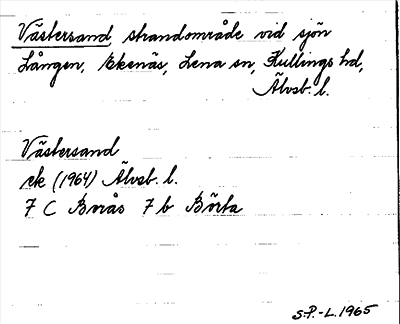 Västersand strandområde vid sjön
Lången, Ekenäs, Lena sn, Kullings hd,
Älvsb. l.
Västersand
ek (1964) Älvsb. l.
7 C Borås 7 b Börta
S.P.-L. 1965